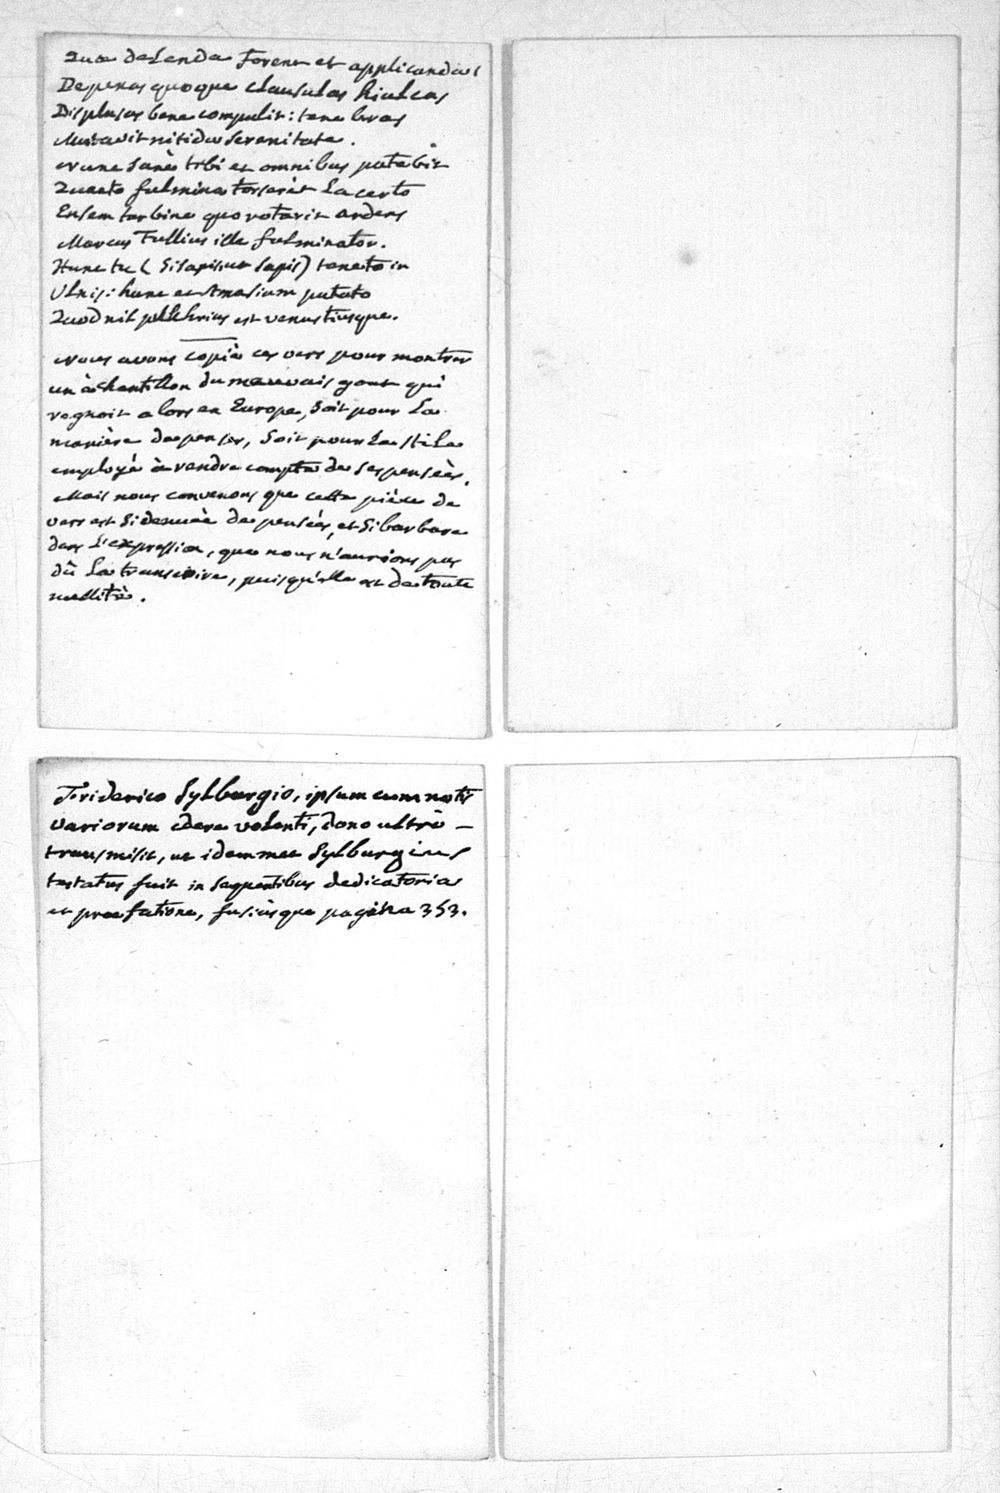 Quæ delenda forent et applicandas
Depexas quoque clausulas hiulcas
Displusas bene compulit: tenebras
Mutavit nitida serenitate.
Nunc sanè tibi et omnibus patebit
Quanto fulmina torserit lacerto
Ensem turbine quo rotarit ardens
Marcus Tullius ille fulminator.
Hunc tu (si sapis, ut sapis) teneto in
Ulnis: hunc et Amasium putato
Quod nil pulchrius est venustiusque.
Nous avons copié ces vers pour montrer
un èchantillon du mauvais gout qui
regnoit alors en Europe, soit pour la
manière de penser, soit pour le stile
employé à rendre compte de ses pensées.
Mais nous convenons que cette pièce de
vers est si denuèe de pensées, et si barbare
dans l'expression, que nous n'aurions pas
dû la transcrire, puisqu'elle est de toute
nullitè.
Friderico Sylburgio, ipsum cum notis
variorum edere volenti, dono ultrò
transmisit, ut idemmet Sylburgius
testatus fuit in sequentibus dedicatoria
et præfatione, fusiùsque pagina 353.